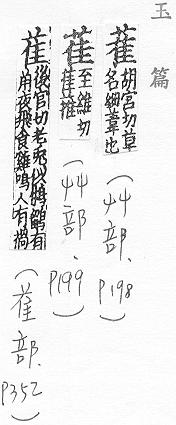 玉篇
萑
胡官切草
名細葦也
(艸部. P198)
萑
至維切
萑蓷
(艸部. P199)
雈
後官切老兎似有
角夜飛食雞鳴人有禍
(雈部. P352)